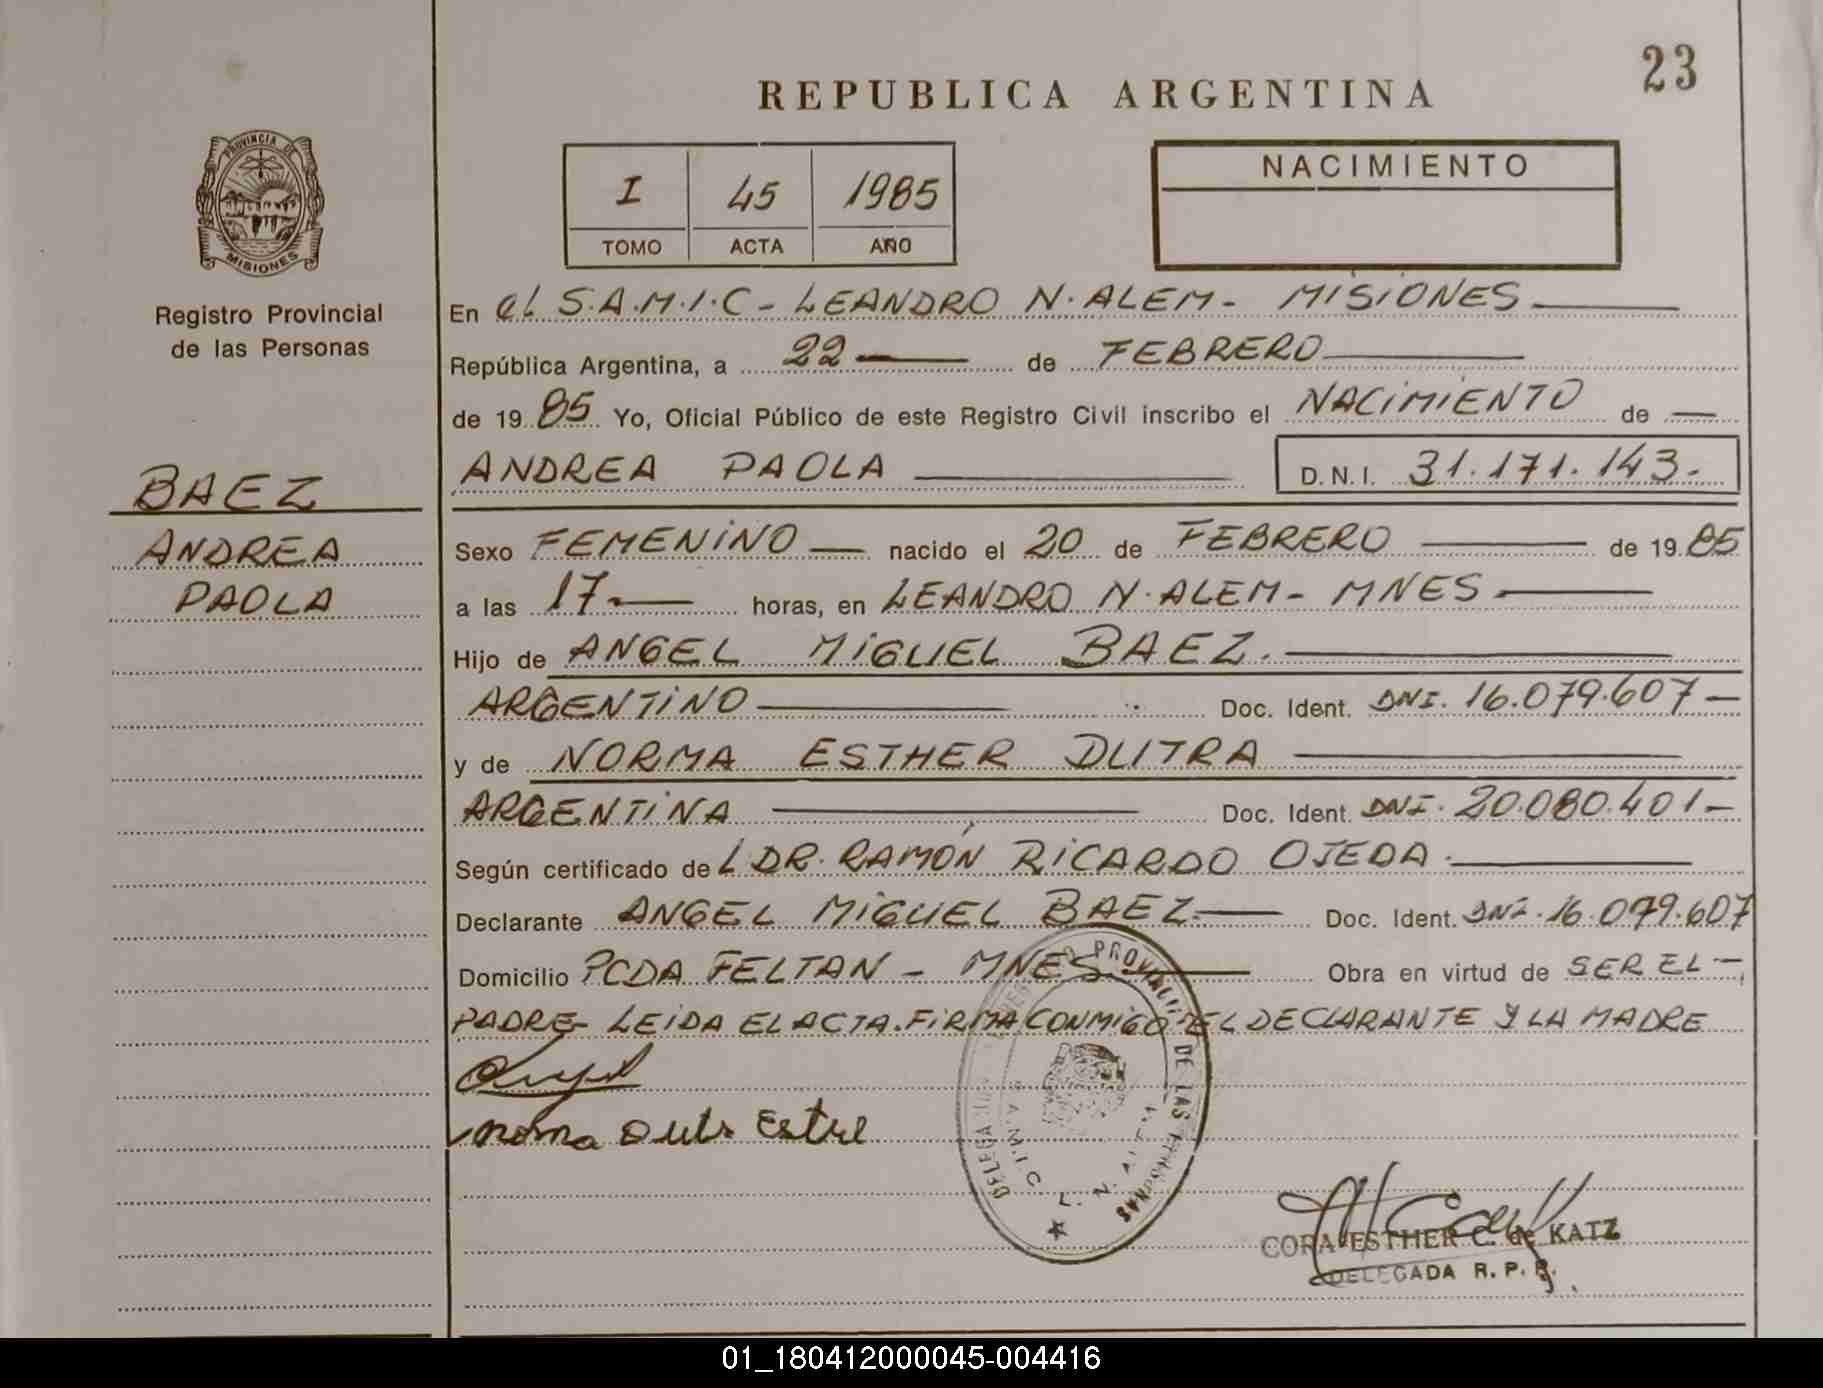 23
REPUBLICA ARGENTINA
PROVINCIA DE
MISIONES
I 45 1985
TOMO ACTA AÑO
NACIMIENTO
Registro Provincial
de las Personas
BAEZ
ANDREA
PAOLA
En el S.A.M.I.C - LEANDRO N. ALEM - MISIONES
República Argentina, a 22 de FEBRERO
de 19 85 Yo, Oficial Público de este Registro Civil inscribo el NACIMIENTO de
ANDREA PAOLA D.N.I. 31.171.143.
Sexo FEMENINO nacido el 20 de FEBRERO de 19 85
a las 17. horas, en LEANDRO N. ALEM - MNES
Hijo de ANGEL MIGUEL BAEZ.
ARGENTINO Doc. Ident. DNI. 16.079.607
y de NORMA ESTHER DUTRA
ARGENTINA Doc. Ident. DNI. 20.080.401
Según certificado de L DR. RAMÓN RICARDO OJEDA.
Declarante ANGEL MIGUEL BAEZ. Doc. Ident. DNI. 16.079.607
Domicilio PCDA FELTAN - MNES Obra en virtud de SER EL
PADRE - LEIDA EL ACTA. FIRMA CONMIGO EL DECLARANTE Y LA MADRE
PROVINCIAL DE LAS PERSONAS
L. N. ALEM
CORA ESTHER C. de KATZ
DELEGADA R. P. P.
01_180412000045-004416